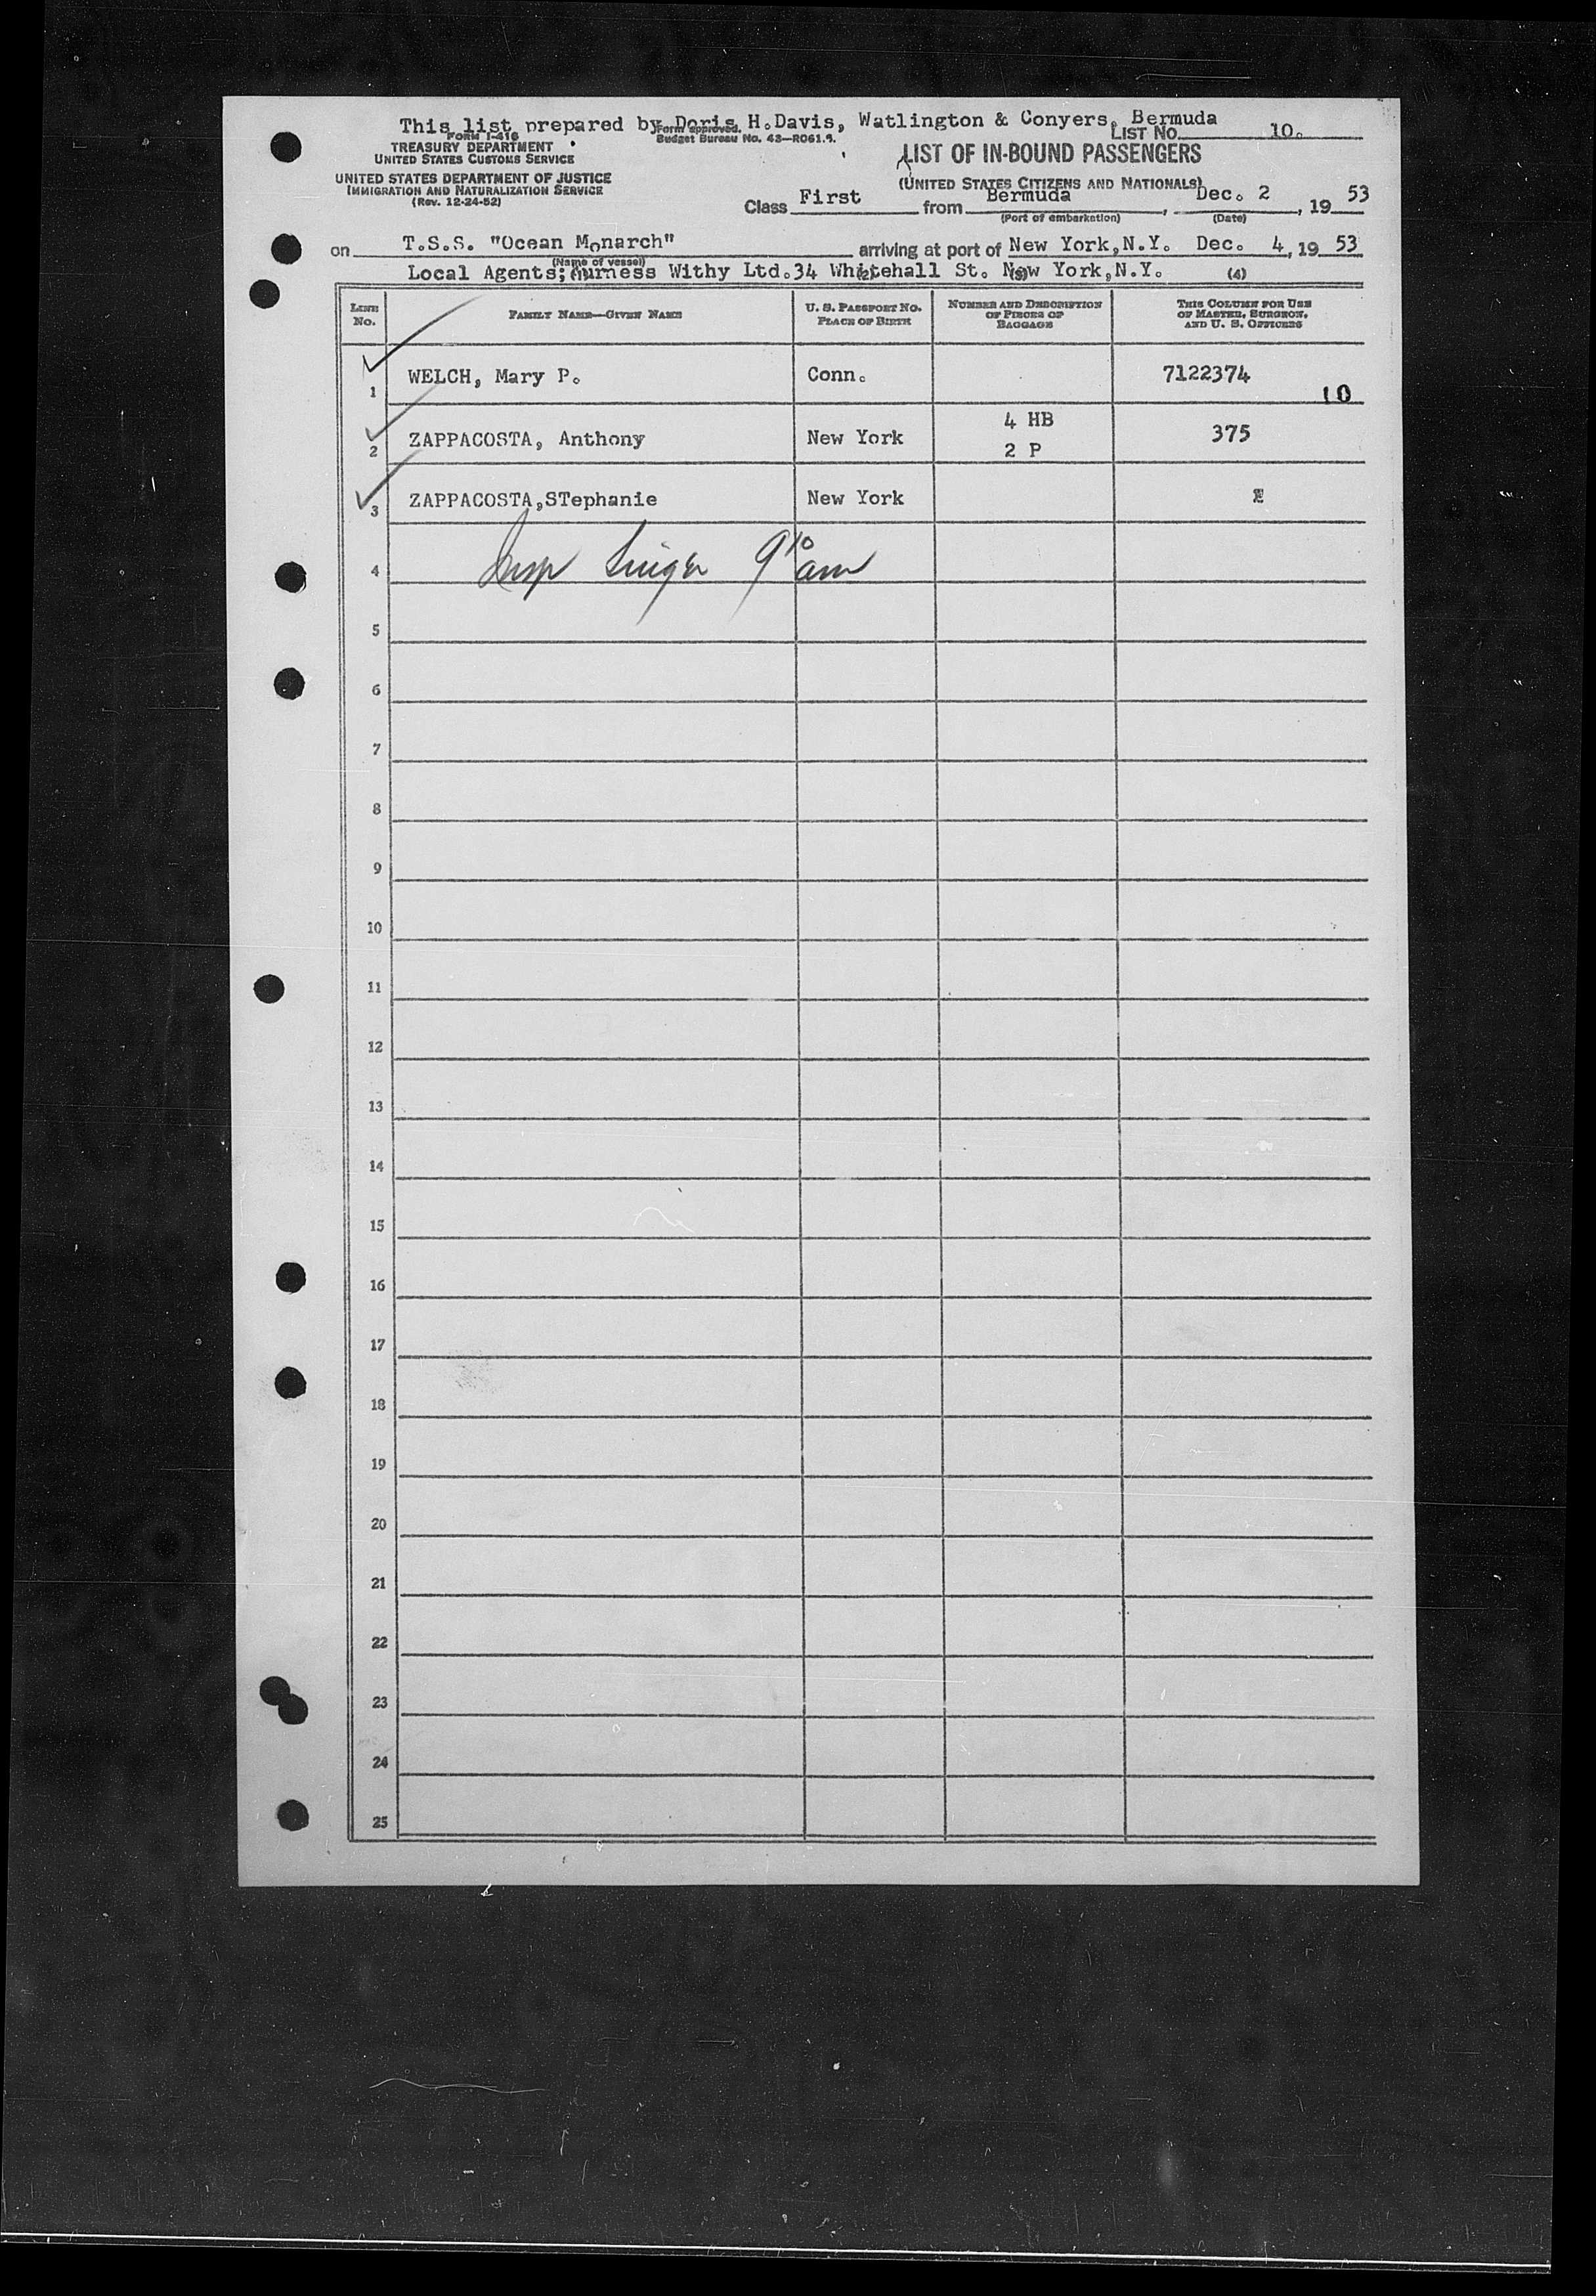 This list prepared by Doris H.Davis, Watlington & Conyers, Bermuda
LIST No. 10.
FORM I-416
TREASURY DEPARTMENT
UNITED STATES CUSTOMS SERVICE
UNITED STATES DEPARTMENT OF JUSTICE
IMMIGRATION AND NATURALIZATION SERVICE
(Rev. 12-24-52)
Form approved.
Budget Bureau No. 43—R061.
LIST OF IN-BOUND PASSENGERS
(UNITED STATES CITIZENS AND NATIONALS)
Class First from Bermuda, Dec. 2, 19 53
(Port of embarkation) (Date)
on T.S.S. "Ocean Monarch" arriving at port of New York,N.Y. Dec. 4, 19 53
(Name of vessel)
Local Agents; Furness Withy Ltd.34 Whitehall St. New York,N.Y.
(2) (3) (4)
LINE No. FAMILY NAME—GIVEN NAME U. S. PASSPORT NO. PLACE OF BIRTH NUMBER AND DESCRIPTION OF PIECES OF BAGGAGE THIS COLUMN FOR USE OF MASTER, SURGEON, AND U. S. OFFICERS
1 WELCH, Mary P. Conn. 7122374 10
2 ZAPPACOSTA, Anthony New York 4 HB 2 P 375
3 ZAPPACOSTA,STephanie New York
4 Insp Singer 9 10 am
5
6
7
8
9
10
11
12
13
14
15
16
17
18
19
20
21
22
23
24
25